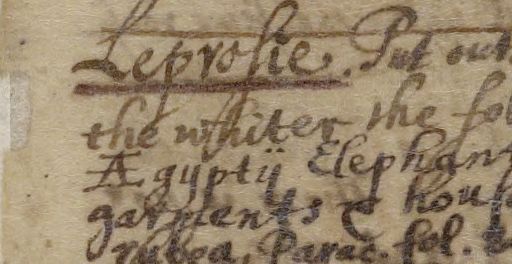 Leprosie. Put out
the whiter the fol
Ægyptij Elephant
garments & hous
rubea, Parac. fol.